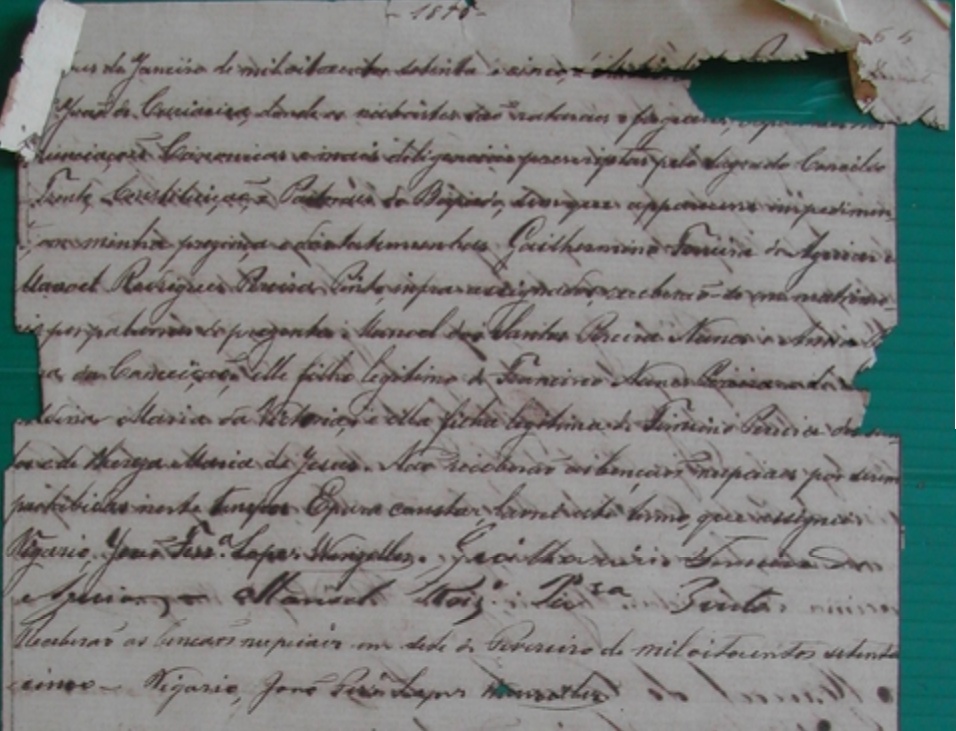 - 1875 -
de Janeiro de mil oito centos setenta e cinco,
donde os nubentes são naturaes e
pelo Sagrado Concilio
Trento, Constituição e Pastoraes do Bispado, sem que apparecesse impedimen
em minha prezença e das testemunhas Guilhermino Ferreira de Aguiar e
Manoel Rodrigues Pereira Pinto, infra assignados, receberão-se em matrimo
por palavras de prezente: Manoel dos Santos Pereira Nunes e Anna
da Conceição, elle filho legitimo de Francisco Nunes Pereira
Maria da Victoria, e ella filha legitima de Firmino Pereira dos
tos e de Thereza Maria de Jesus. Não receberão as bençãos nupciaes por serem
prohibidas neste tempo. E para constar, lavrei este termo, que assignei
Vigario, José Ferrª Lopes Guilhermino Ferreira de
Aguiar Manoel Roiz' Pirª Pinto
Receberão as bençãos nupciaes em de Fevereiro de mil oitocentos setenta
cinco - Vigario, José Lopes